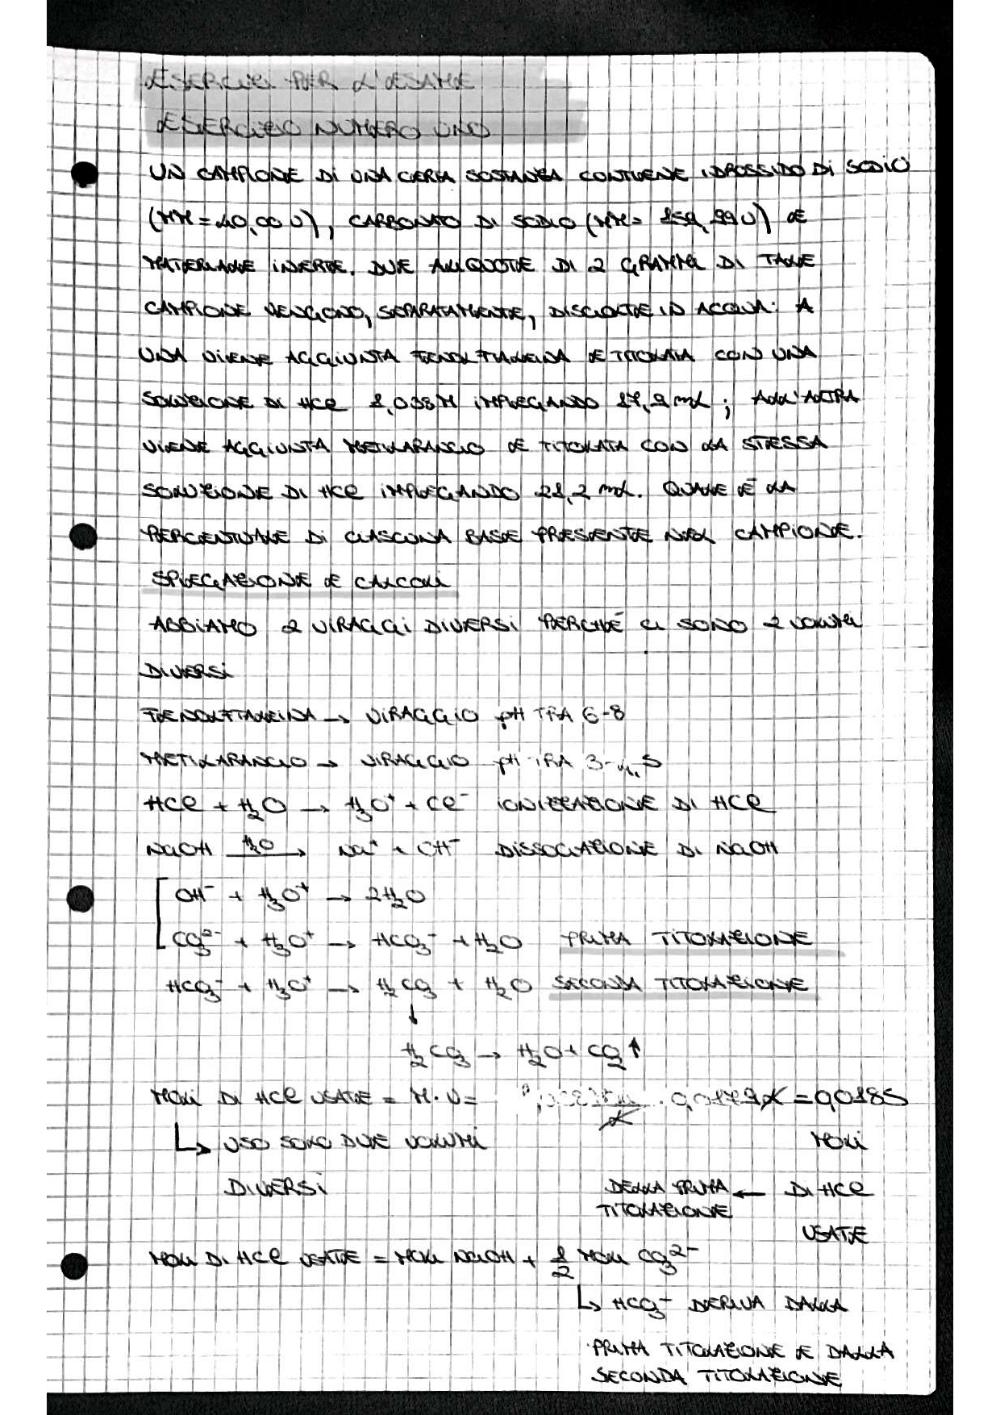 ESERCIZI PER L'ESAME
ESERCIZIO NUMERO UNO
UN CAMPIONE DI UNA CERTA SOSTANZA CONTIENE IDROSSIDO DI SODIO
(MM=40,00 U), CARBONATO DI SODIO (MM= 159,99U) E
MATERIALE INERTE. DUE ALIQUOTE DI 2 GRAMMI DI TALE
CAMPIONE VENGONO, SEPARATAMENTE, DISCIOLTE IN ACQUA: A
UNA VIENE AGGIUNTA FENOLFTALEINA E TITOLATA CON UNA
SOLUZIONE DI HCl 1,038M IMPIEGANDO 17,9 mL; ALL'ALTRA
VIENE AGGIUNTA METILARANCIO E TITOLATA CON LA STESSA
SOLUZIONE DI HCl IMPIEGANDO 21,2 mL. QUALE È LA
PERCENTUALE DI CIASCUNA BASE PRESENTE NEL CAMPIONE.
SPIEGAZIONE E CALCOLI
ABBIAMO 2 VIRAGGI DIVERSI PERCHÉ CI SONO 2 VOLUMI
DIVERSI
FENOLFTALEINA → VIRAGGIO pH TRA 6-8
METILARANCIO → VIRAGGIO pH TRA 3-4,5
HCl + H2O → H3O+ + Cl- IONIZZAZIONE DI HCl
NaOH H2O → Na+ + OH- DISSOCIAZIONE DI NaOH
OH- + H3O+ → 2H2O
CO3^2- + H3O+ → HCO3- + H2O PRIMA TITOLAZIONE
HCO3- + H3O+ → H2CO3 + H2O SECONDA TITOLAZIONE
↓
H2CO3 → H2O + CO2↑
MOLI DI HCl USATE = M·V= · 0,0179L = 0,0185
↳ USO SOLO DUE VOLUMI MOLI
DIVERSI DELLA PRIMA ← DI HCl
TITOLAZIONE USATE
MOLI DI HCl USATE = MOLI NaOH + 1/2 MOLI CO3^2-
↳ HCO3- DERIVA DALLA
PRIMA TITOLAZIONE E DALLA
SECONDA TITOLAZIONE